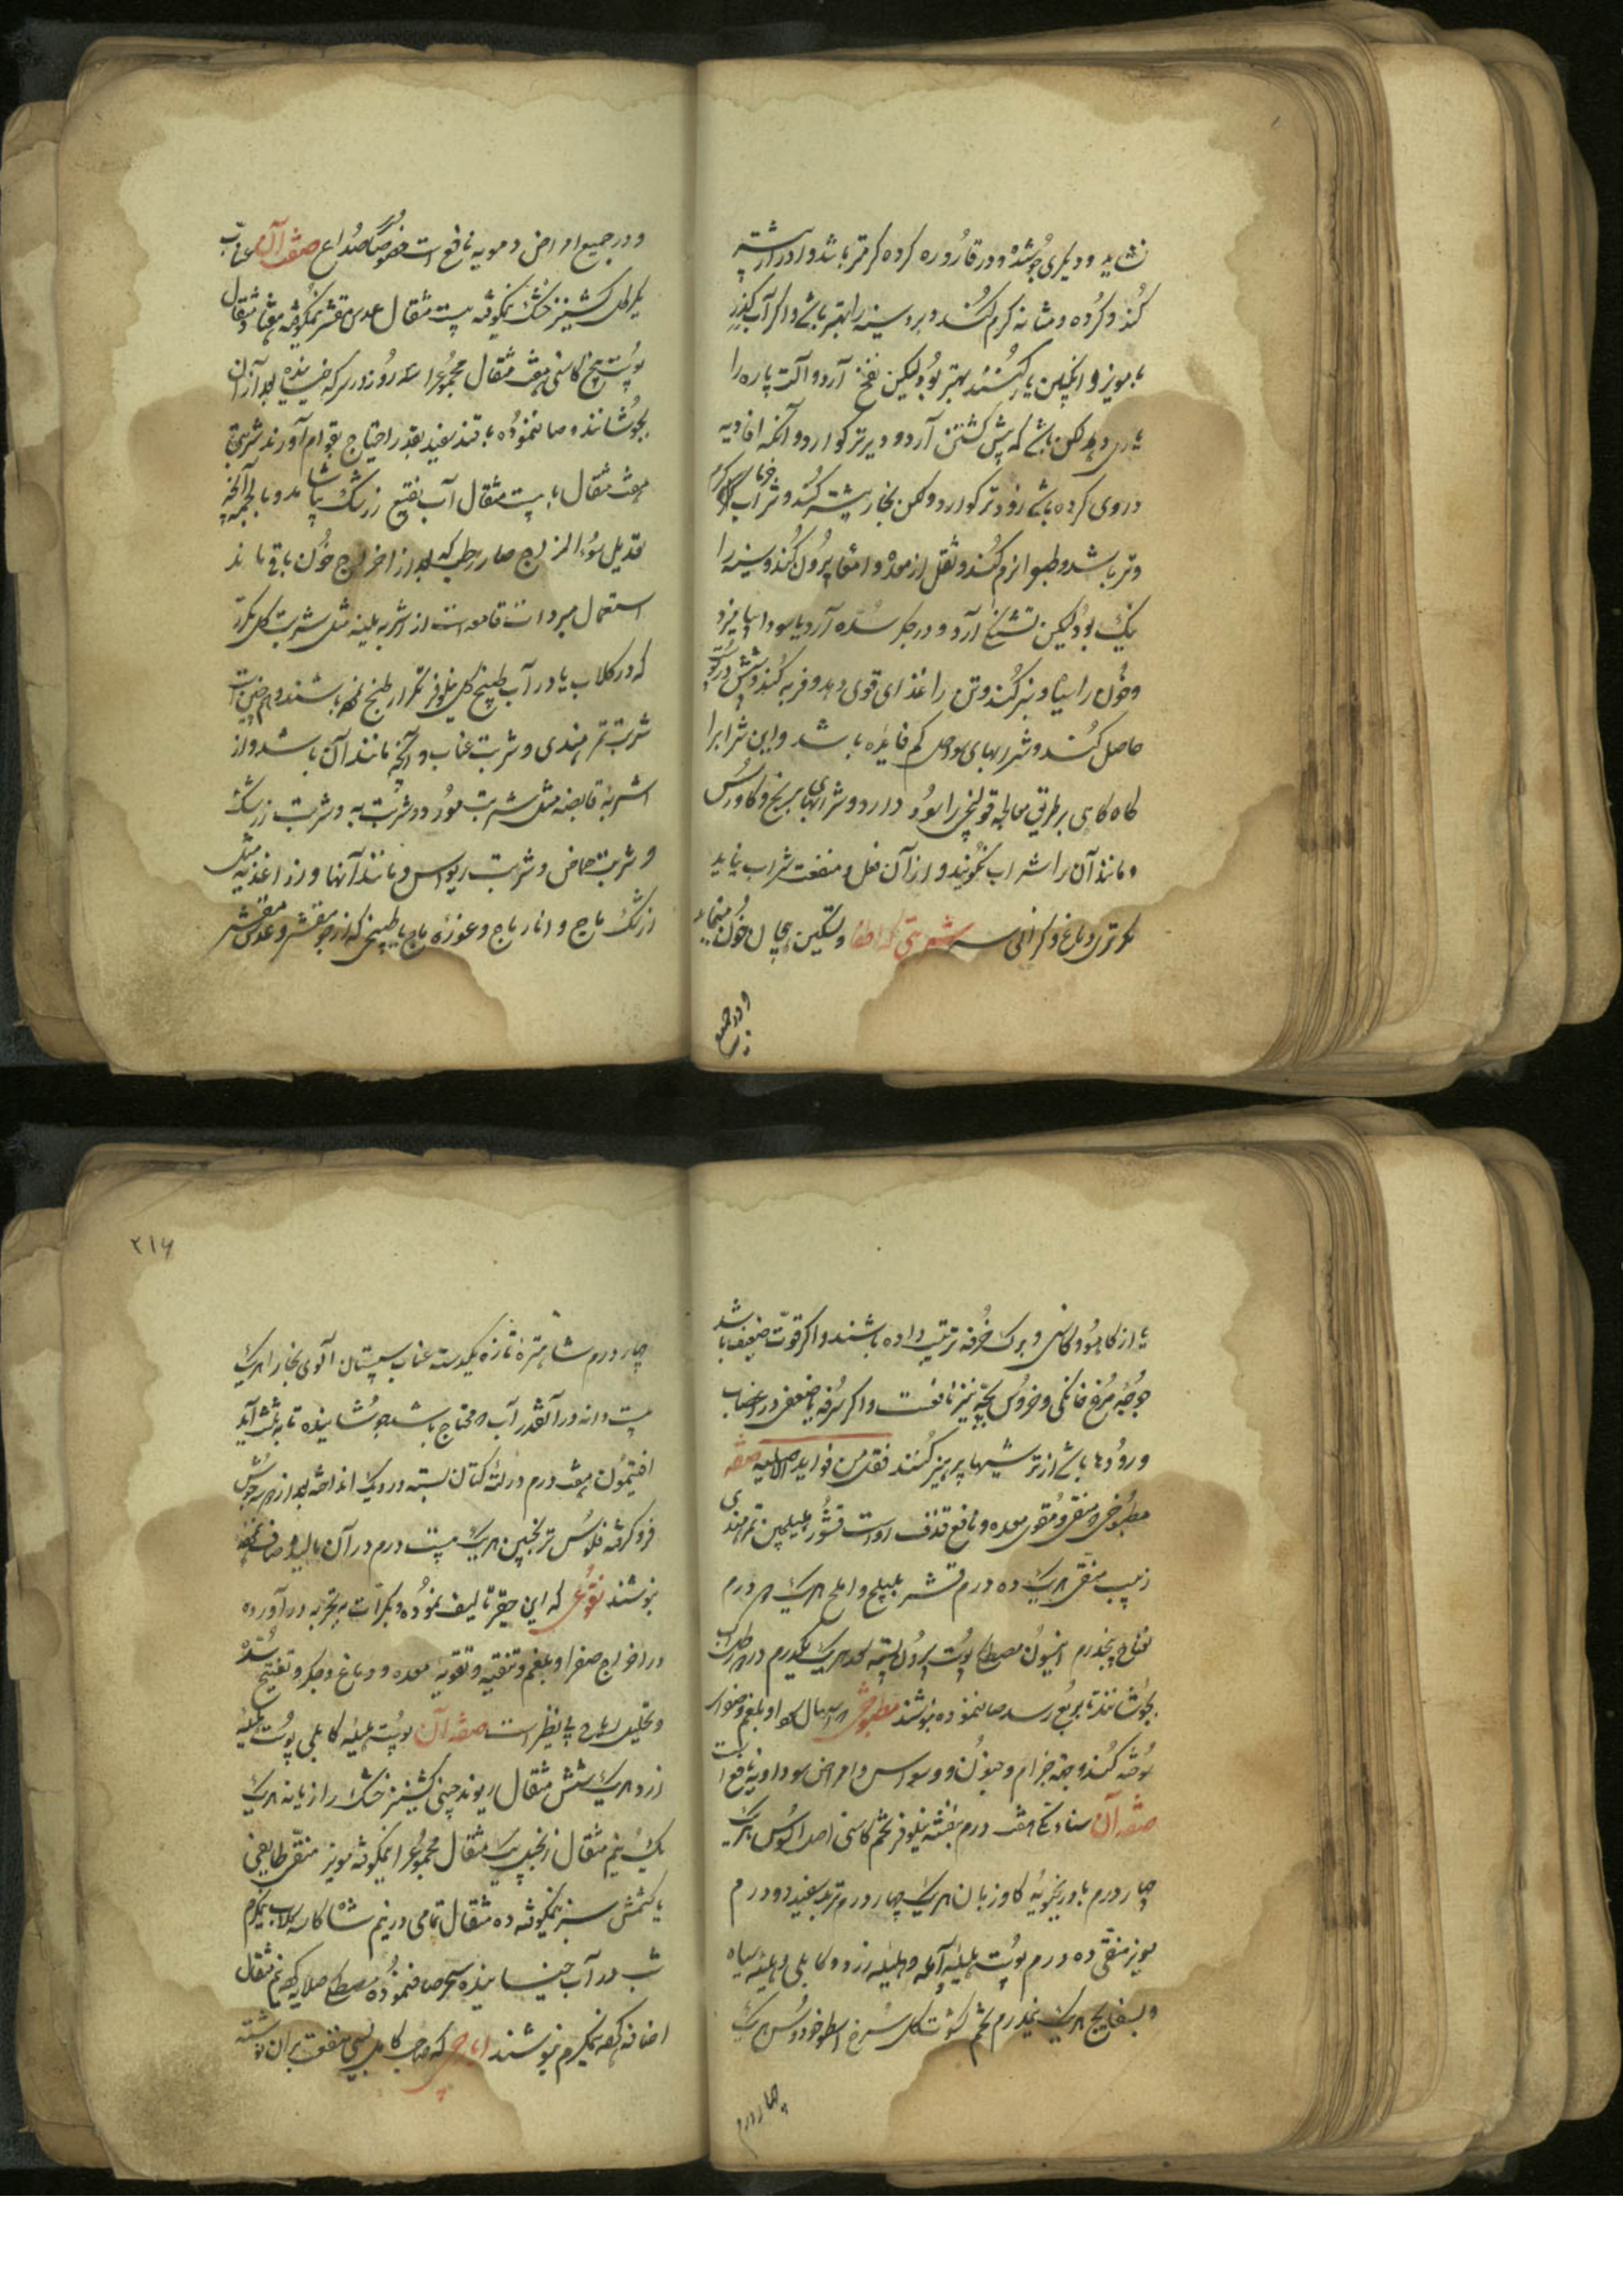 نشاید و دیگری جوشد و در قاروره کرده گرمتر باشد و ادرار بیشتر
کند و گرده و مثانه گرم کند و برو سینه را بهتر باشد و اگر آب گذر
با مویز و انگبین یار کنند بهتر بود لیکن نفخ آرد و آلت پاره را
یاری دهد لکن باشد که پیش گشتن آرد و دیرتر گوارد و آنکه افاویه
در وی کرده باشد زودتر گوارد و لکن بخار بیشتر کند و شراب خرما گرم
و تر باشد و طبع را نرم کند و ثقل از معده و امعا بیرون کند و سینه را
نیک بود لیکن تشنگی آرد و در جگر سده آرد یا سودا بیامیزد
و خون را سیاه و ستبر کند و تن را غذای قوی دهد و فربه کند و پیش در پوست
حاصل کند و شرابهای کم فایده باشد و این شراب را
گاه گاهی بر طریق معالجه قولنجی را سود دارد و شرابهای برنج و گاورس
و مانند آن را شراب نگویند و از آن فعل و منفعت شراب نیاید
مگر تری دماغ و گرانی سر شربتی که اطفا و تسکین هیجان خون مینماید
و در جمیع
و در جمیع امراض دمویه نافع است خصوصا صداع صفه آن عناب
یکرطل کشنیز خشک نیمکوفته بیست مثقال عدس مقشر نیمکوفته هفتاد مثقال
پوست بیخ کاسنی هفت مثقال مجموع را سه روز در سرکه خیسانیده بعد از آن
بجوشانند و صاف نموده با قند سفید بقدر احتیاج بقوام آورند شربتی
هفت مثقال با بیست مثقال آب نقیع زرشک بیاشامد و بالجمله آنچه
تعدیل سوء المزاج حار رطب که بعد از اخراج خون باقی ماند
استعمال مبردات قامعه است از اشربه ملینه مثل شربت گل مکرر
که در گلاب یا در آب طبیخ گل نیلوفر تکرار طبخ یافته باشند و همچنین است
شربت تمر هندی و شربت عناب و آنچه مانند آن باشد و از
اشربه قابضه مثل شربت مورد و شربت به و شربت زرشک
و شربت حماض و شربت ریواس و مانند آنها و از اغذیه مثل
زرشک باج و انار باج و غوره باج یا طبیخی که از جو مقشر و عدس مقشر
یا از کاهو و کاسنی و برگ خرفه ترتیب داده باشند و اگر قوت ضعیف باشد
جوجه مرغ خانگی و خروس بچه نیز نافعست و اگر سرفه یا ضعفی در اعصاب
و رودها باشد از ترشیها پرهیز کنند نقل من فواید الاصلیه صفه
مطبوخی منقی و مقوی معده و نافع قذف است قشور هلیلجین تمر هندی
زبیب منقی هریک ده درم قشر بلیلج و املج هریک درم
نعناع پنجدرم انیسون مصطکی پوست بیرون پسته هریک یکدرم در رطل آب
بجوشانند تا بربع رسد صاف نموده بنوشند مطبوخی که اسهال سودا و بلغم و صفرای
سوخته کند و جهة جذام و جنون و وسواس و امراض سوداویه نافع است
صفه آن سناء مکی هفت درم بنفشه نیلوفر تخم کاسنی اصل السوس هریک
چهار درم بادرنجبویه گاوزبان هریک چهار درم تربد سفید دو درم
مویز منقی ده درم پوست هلیله آمله و هلیله زرد و کابلی و هلیله سیاه
و بسفایج هریک پنجدرم تخم کشوث گل سرخ اسطوخودوس هریک
چهار درم
۲۱۶
چهار درم شاهتره تازه یکدسته عناب سپستان آلوی بخارا هریک
بیست دانه در آنقدر آب که محتاج باشد جوشانیده تا به ثلث آید
افتیمون هفت درم در لته کتان بسته در دیگ انداخته بعد از دو سه جوش
فرو گرفته فلوس ترنجبین هریک بیست درم در آن مالیده صاف کرده
بنوشند نقوعی که این حقیر تالیف نموده و بکرات به تجربه در آورده
در اخراج صفرا و بلغم و تنقیه و تقویه معده و دماغ و جگر و تفتیح سده
و تحلیل ریاح بی نظیر است صفه آن پوست هلیله کابلی پوست هلیله
زرد هریک شش مثقال ریوند چینی کشنیز خشک رازیانه هریک
یک نیم مثقال زنجبیل یک مثقال مجموع را نیمکوفته مویز منقی طایفی
یا کشمش سبز نیمکوفته ده مثقال تمامی در نیم شاکاسه گلاب نیمگرم
شب در آب خیسانیده سحر صاف نموده مصطکی صلایه کرده نیم مثقال
اضافه کرده نیمگرم بنوشند ایارجی که صاحب کامل بسی منفعت بر آن نوشته